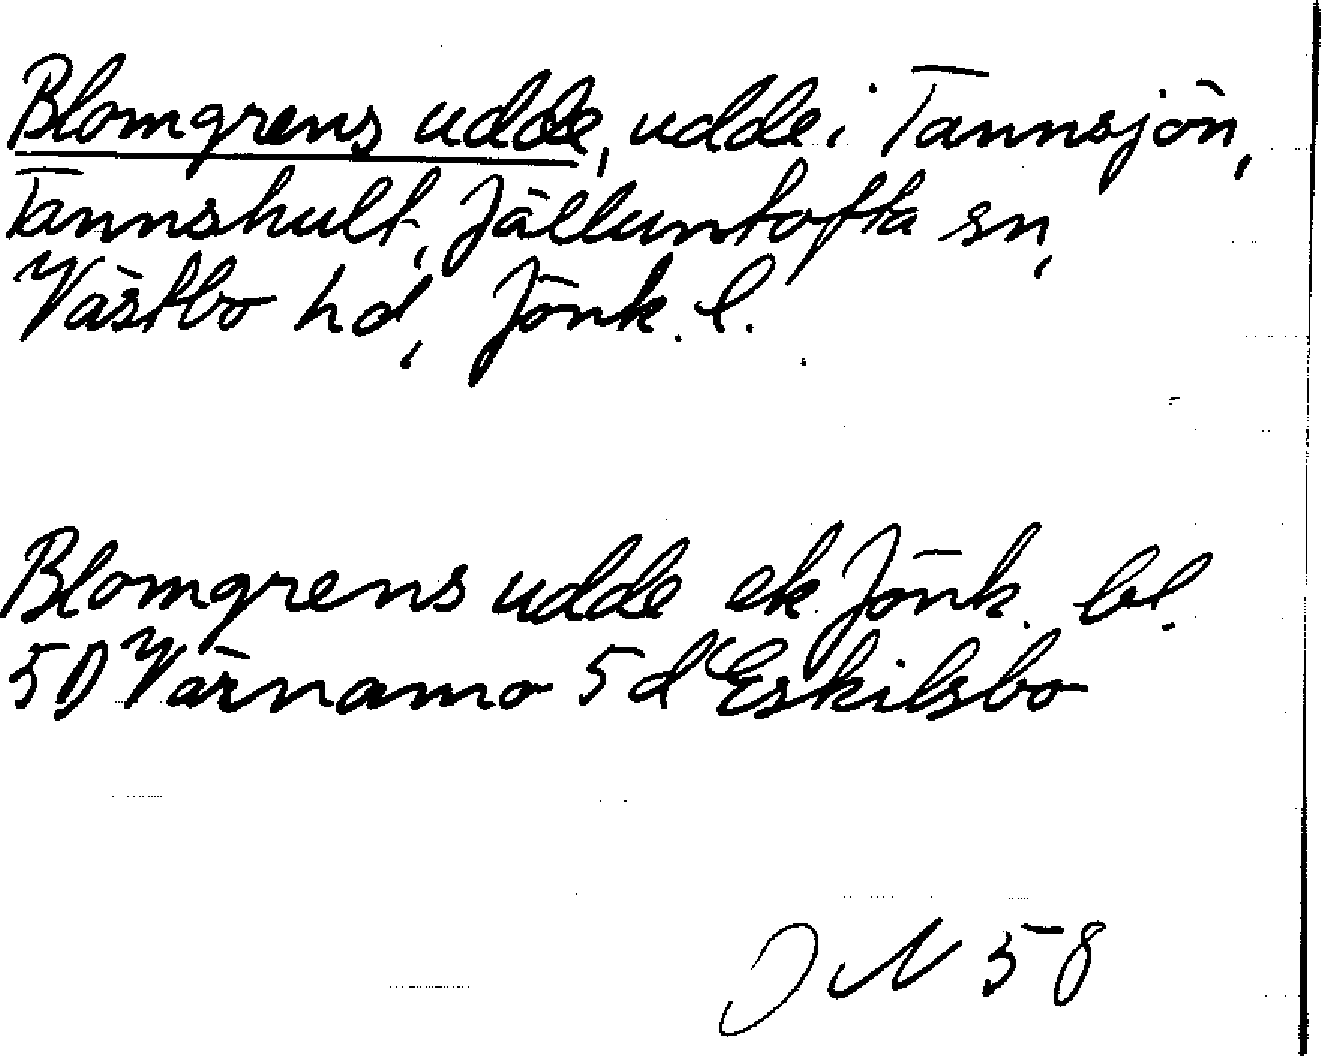 Blomgrens udde, udde i Tannsjön,
Tannshult, Jälluntofta sn,
Västbo hd, Jönk. l.
Blomgrens udde ek Jönk. bl.
5D Värnamo 5d Eskilsbo
58